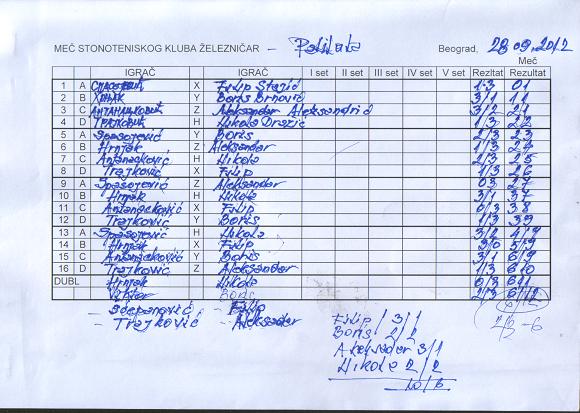 MEČ STONOTENISKOG KLUBA ŽELEZNIČAR –
Beograd, 28 09. 2012
Meč
IGRAČ IGRAČ I set II set III set IV set V set Rezltat Rezultat
1 A X Filip 1/3 0/1
2 B Y Boris Brnović 3/1 1/1
3 C Z Aleksandar Aleksandrić 3/2 2/1
4 D H Nikola Drezić 1/3 2/2
5 A Spasojević Y Boris 1/3 2/3
6 B Hrnjak Z Aleksandar 1/3 2/4
7 C Antanacković H Nikola 2/3 2/5
8 D Trajković X Filip 1/3 2/6
9 A Spasojević Z Aleksandar 0/3 2/7
10 B Hrnjak H Nikola 3/1 3/7
11 C Antanacković X Filip 0/3 3/8
12 D Trajković Y Boris 1/3 3/9
13 A Spasojević H Nikola 3/2 4/9
14 B Hrnjak X Filip 3/0 5/9
15 C Antanacković Y Boris 3/1 6/9
16 D Trajković Z Aleksandar 1/3 6/10
DUBL Hrnjak Nikola 0/3 6/11
Boris 2/3 6/12
– Stepanović – Filip
– Trajković – Aleksandar
2/3 –6
Filip / 3/1
Boris 2/2
Aleksandar 3/1
Nikola 2/2
10/6